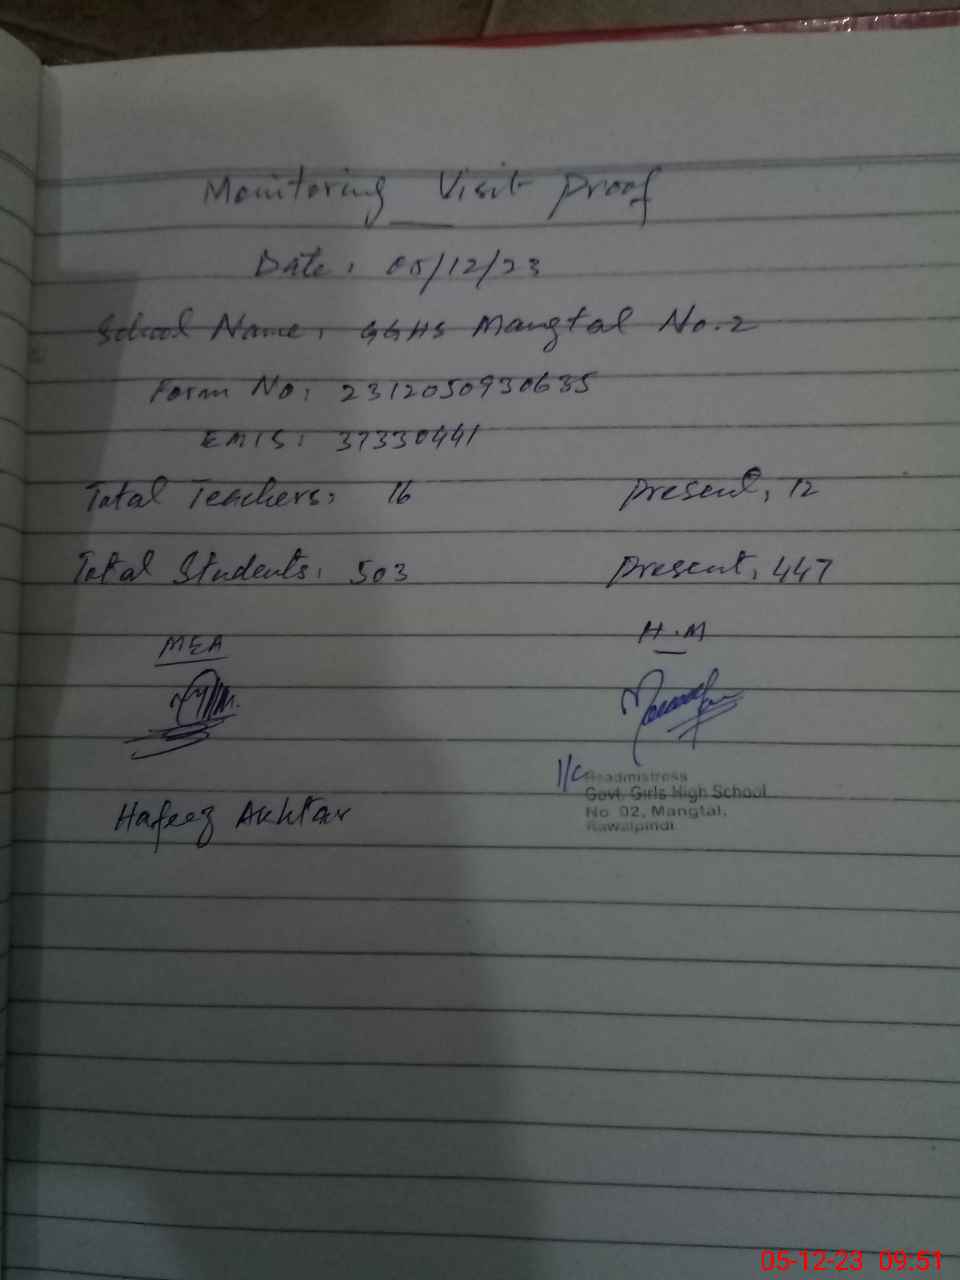 Monitoring Visit Proof
Date: 05/12/23
School Name: GGHS Mangtal No.2
Form No: 2312050930635
EMIS: 37330441
Total Teachers: 16 Present: 12
Total Students: 503 Present: 447
MEA H.M
I/C Headmistress
Govt. Girls High School
No 02, Mangtal,
Rawalpindi
Hafeez Akhtar
05-12-23 09:51